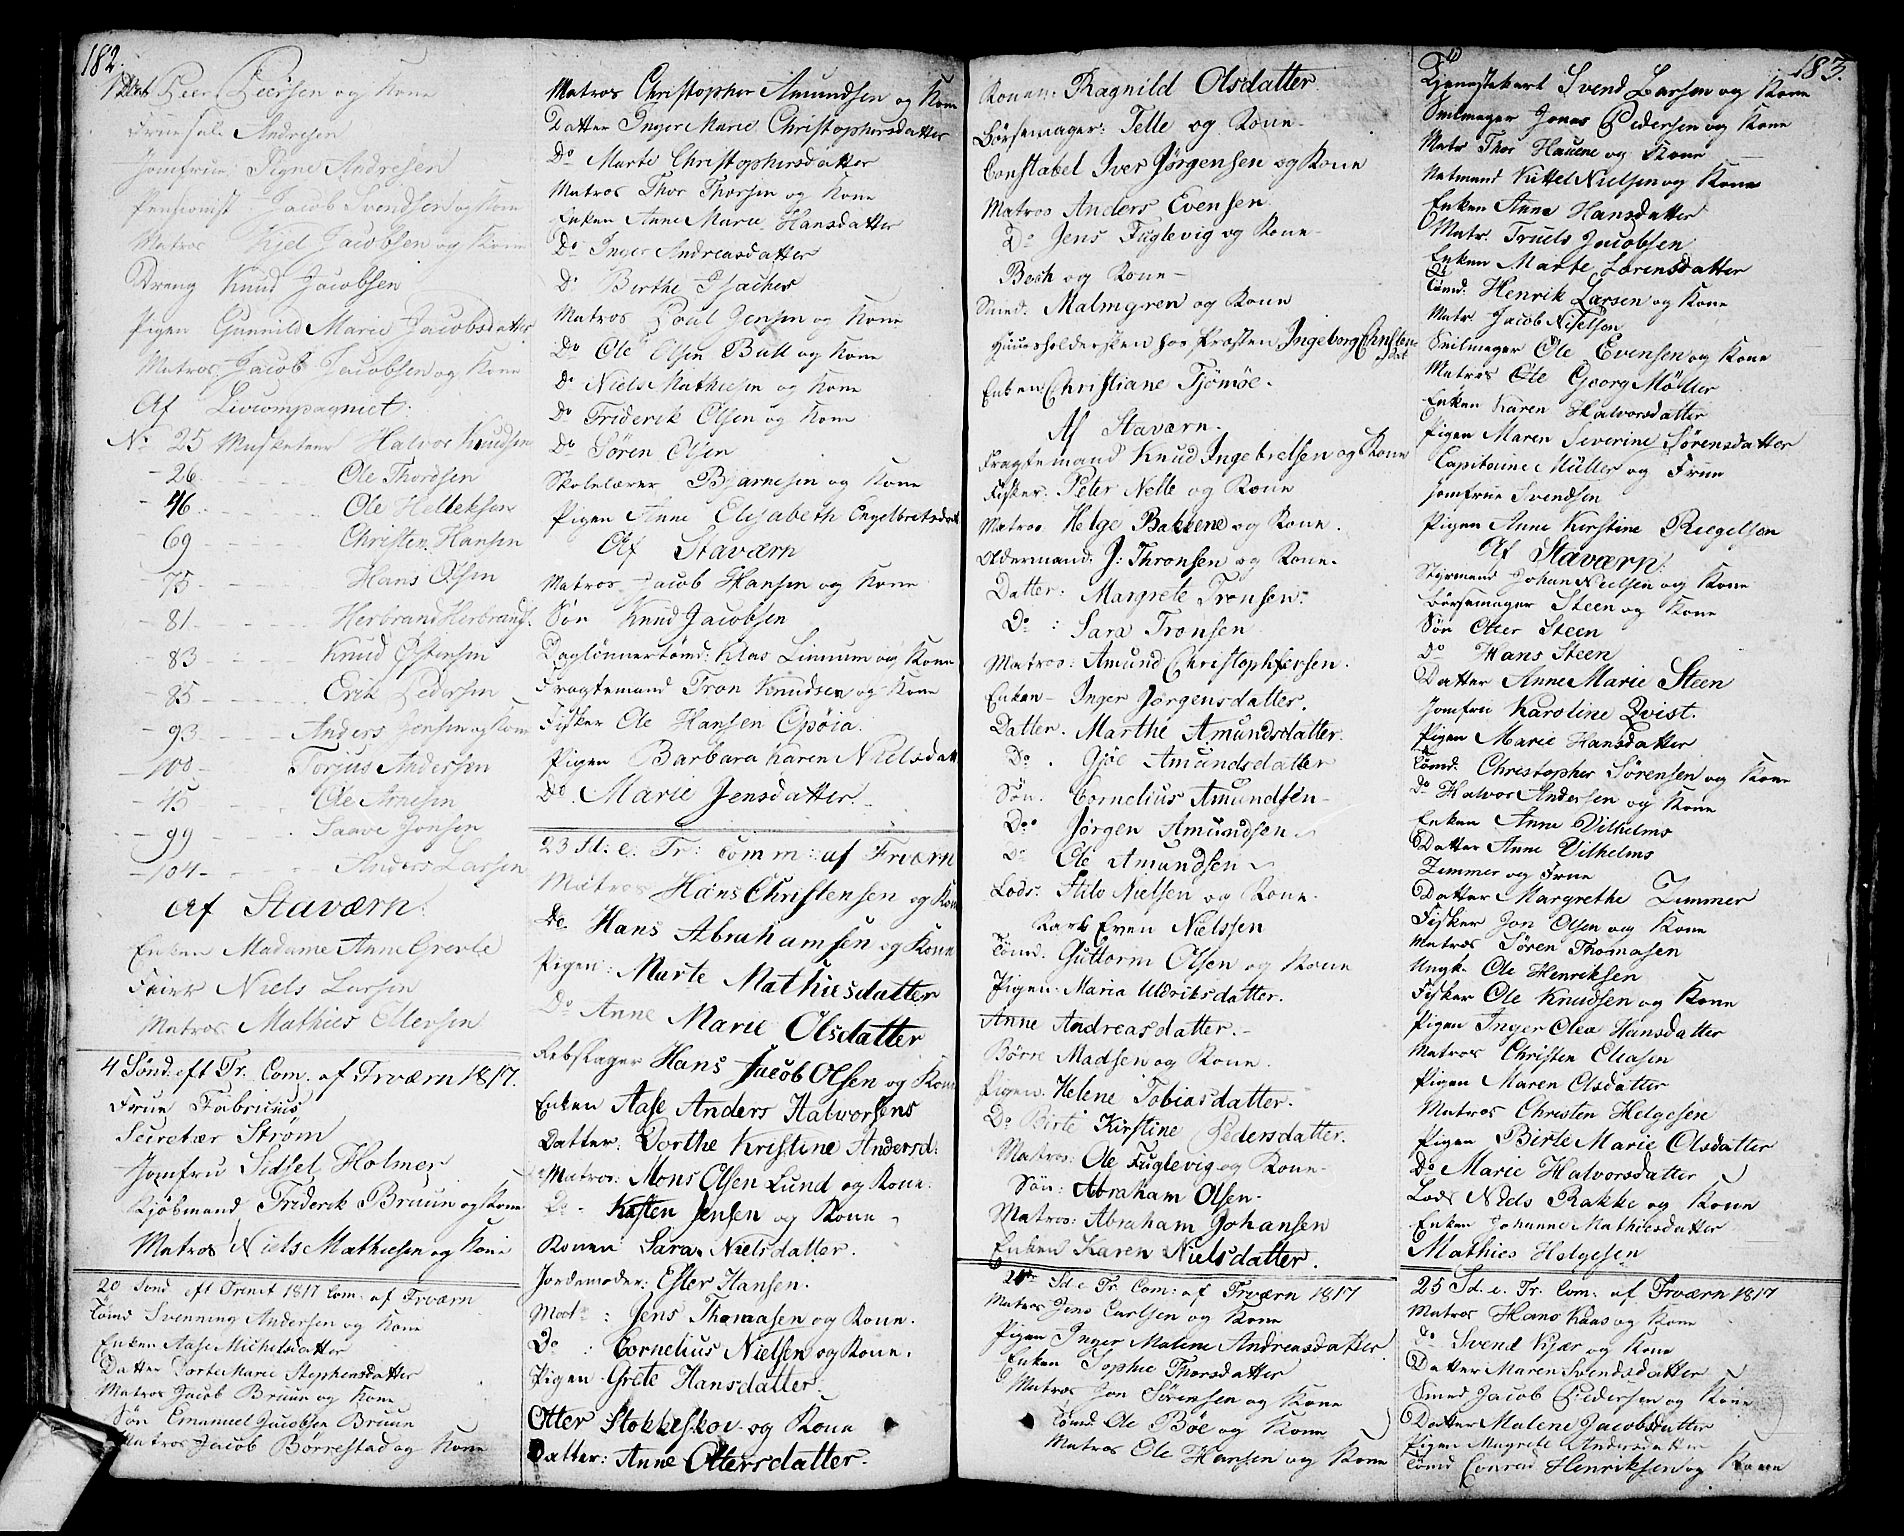 182.
Matr Peer Peersen og Kone
Frue sal. Andresen
Jomfrue Signe Andresen
Pensionist Jacob Svendsen og Kone
Matros Kiel Jacobsen og Kone
Dreng Knud Jacobsen
Pigen Gunnild Marie Jacobsdatter
Matros Jacob Jacobsen og Kone
Af Livcompagniet:
No 25 Musketeer Halvor Knudsen
- 26 Ole Thordsen
- 46 Ole Helleksen
69 Christen Hansen
75 Hans Olsen
- 81 Herbrand Herbrands.
- 83 Knud Østensen
- 85 Erik Pedersen
- 93 Anders Jensen og Kone
- 100 Torjus Andersen
- 45 Ole Arnesen
- 99 Saave Jonsen
- 104 Anders Larsen
Af Staværn:
Enken Madame Anne Grerte
Feier Niels Larsen
Matros Mathies Ottersen
4 Sønd: eft Tr. Com. af Frværn 1817.
Frue Fabrisius
Secretær Strøm
Jomfru Sidsel Holmer
Kjøbmand Friderik Bruun og Kone
Matros Niels Mathiesen og Kone
20 Sond eft Trinit 1817 Com: af Frværn
Tömd Svenning Andersen og Kone
Enken Aase Michelsdatter
Datter Dorte Marie Stephensdatter
Matros Jacob Bruun og Kone
Søn Emanuel Jacobsen Bruun
Matros Jacob Børrestad og Kone
Matros Christopher Amundsen og Kone
Datter Inger Marie Christophersdatter
Do Marte Christophersdatter
Matros Thor Thorsen og Kone
Enken Anne Marie Hansdatter
Do Inger Andreasdatter
Do Berthe Isaches
Matros Poul Jensen og Kone
Do Ole Olsen Bull og Kone
Do Niels Mathiesen og Kone
Do Friderik Olsen og Kone
Do Søren Olsen
Skolelærer Bjarnesen og Kone
Pigen Anne Elisabeth Engelbretsdat
Af Staværn
Matros Jacob Hansen og Kone
Søn Knud Jacobsen
Daglønnertømd: Klas Linnum og Kone
Fragtemand Tron Knudsen og Kone
Fisker Ole Hansen Opöia.
Pigen Barbara Karen Nielsdatt
Do Marie Jensdatter.
23 St: e: Tr: Comm: af Frværn
Matros Hans Christensen og Kone
Do Hans Abrahamsen og Kone
Pigen: Marte Mathiesdatter
Do Anne Marie Olsdatter
Rebslager Hans Jacob Olsen og Kone
Enken Aase Anders Halvorsens
Datter: Dorthe Kristine Andersd:
Matros: Mons Olsen Lund og Kone.
Do - Kasten Jensen og Kone
Konen Sara Nielsdatter.
Jordemoder: Ester Hansen.
Matr: Jens Thomasen og Kone.
Do : Cornelius Nielsen og Kone.
Pigen Grete Hansdatter
Otter Stokkeskov og Kone
Datter: Anne Ottersdatter.
Konen: Ragnild Olsdatter.
Børsemager: Telle og Kone
Constabel Iver Jørgensen og Kone
Matros Anders Evensen
Do Jens Fuglevig og Kone
Bosh og Kone -
Smed. Malmgren og Kone
Huusholdersken hos Præsten Ingeborg Christens dat
Enken Christiane Tjömöe.
Af Staværn.
Fragtemand Knud Ingebretsen og Kone
Fisker: Peter Nelle og Kone
Matros Helge Bakkene og Kone.
Oldermand: J: Thronsen og Kone.
Datter: Margrete Tronsen
Do : Sara Tronsen
Matros: Amund Christophersen.
Enken - Inger Jørgensdatter.
Datter. Marthe Amundsdatter.
Do . Gjøe Amundsdatter
Søn. Cornelius Amundsen
Do Jørgen Amundsen
Do Ole Amundsen
Lods: Stils Nielsen og Kone.
Karl Even Nielssen
Tömd. Guttorm Olsen og Kone
Pigen: Maria Uldriksdatter.
Anne Andreasdatter.
Børre Madsen og Kone.
Pigen. Helene Tobiasdatter.
Do Birte Kirstine Pedersdatter.
Matros: Ole Fuglevig og Kone
Søn: Abraham Olsen.
Matros: Abraham Johansen
Enken Karen Nielsdatter.
24de Sd. e Tr. Com: af Frværn 1817
Matros Jens Carlsen og Kone
Pigen Inger Malene Andreasdatter.
Enken Sophie Thorsdatter
Matros Jon Sörensen og Kone
Tömd. Ole Bøe og Kone
Matros Ole Hansen og Kone
183.
Svend Larsen og Kone
Seilmager Jonas Pedersen og Kone
Matr Thor Hauene og Kone
Natmand Kittel Nielsen og Kone
Enken Anne Hansdatter
Matr. Truels Jacobsen
Enken Marte Lorensdatter
Tömd. Henrik Larsen og Kone
Matr Jacob Nielsen
Seilmager Ole Evensen og Kone
Matros Ole Georg Møller
Enken Karen Halvorsdatter
Pigen Maren Severine Sørensdatter
Capitaine Müller og Frue
Jomfrue Svendsen
Pigen Anne Kirstine Riegelsen
Af Staværn:
Styrmand Johan Nielsen og Kone
Börsemager Steen og Kone
Søn Otter Steen
Do Hans Steen
Datter Anne Marie Steen
Jomfru Karoline Qvist.
Pigen Marie Hansdatter
Tømd. Christopher Sørensen og Kone
Do Halvor Andersen og Kone
Enken Anne Vilhelms
Datter Anne Vilhelms
Zimmer og Frue
Datter Margrethe Zimmer
Fisker Jon Olsen og Kone
Matros Søren Thomasen
Ungk. Ole Henriksen
Fisker Ole Knudsen og Kone
Pigen Inger Olea Hansdatter
Matros Christen Eliasen
Pigen Maren Olsdatter
Matros Christen Helgesen
Pigen Birte Marie Olsdatter
Do Marie Halvorsdatter
Lods Niels Rakke og Kone
Enken Johanne Mathiesdatter
Mathies Helgesen
25 Sd. e. Tr. Com: af. Frværn 1817
Matros Hans Kaas og Kone
Do Svend Kjær og Kone
Datter Maren Svendsdatter
Smed Jacob Pedersen og Kone
Datter Malene Jacobsdatter
Pigen Magrete Andersdatter
Tömd Conrad Henriksen og Kone